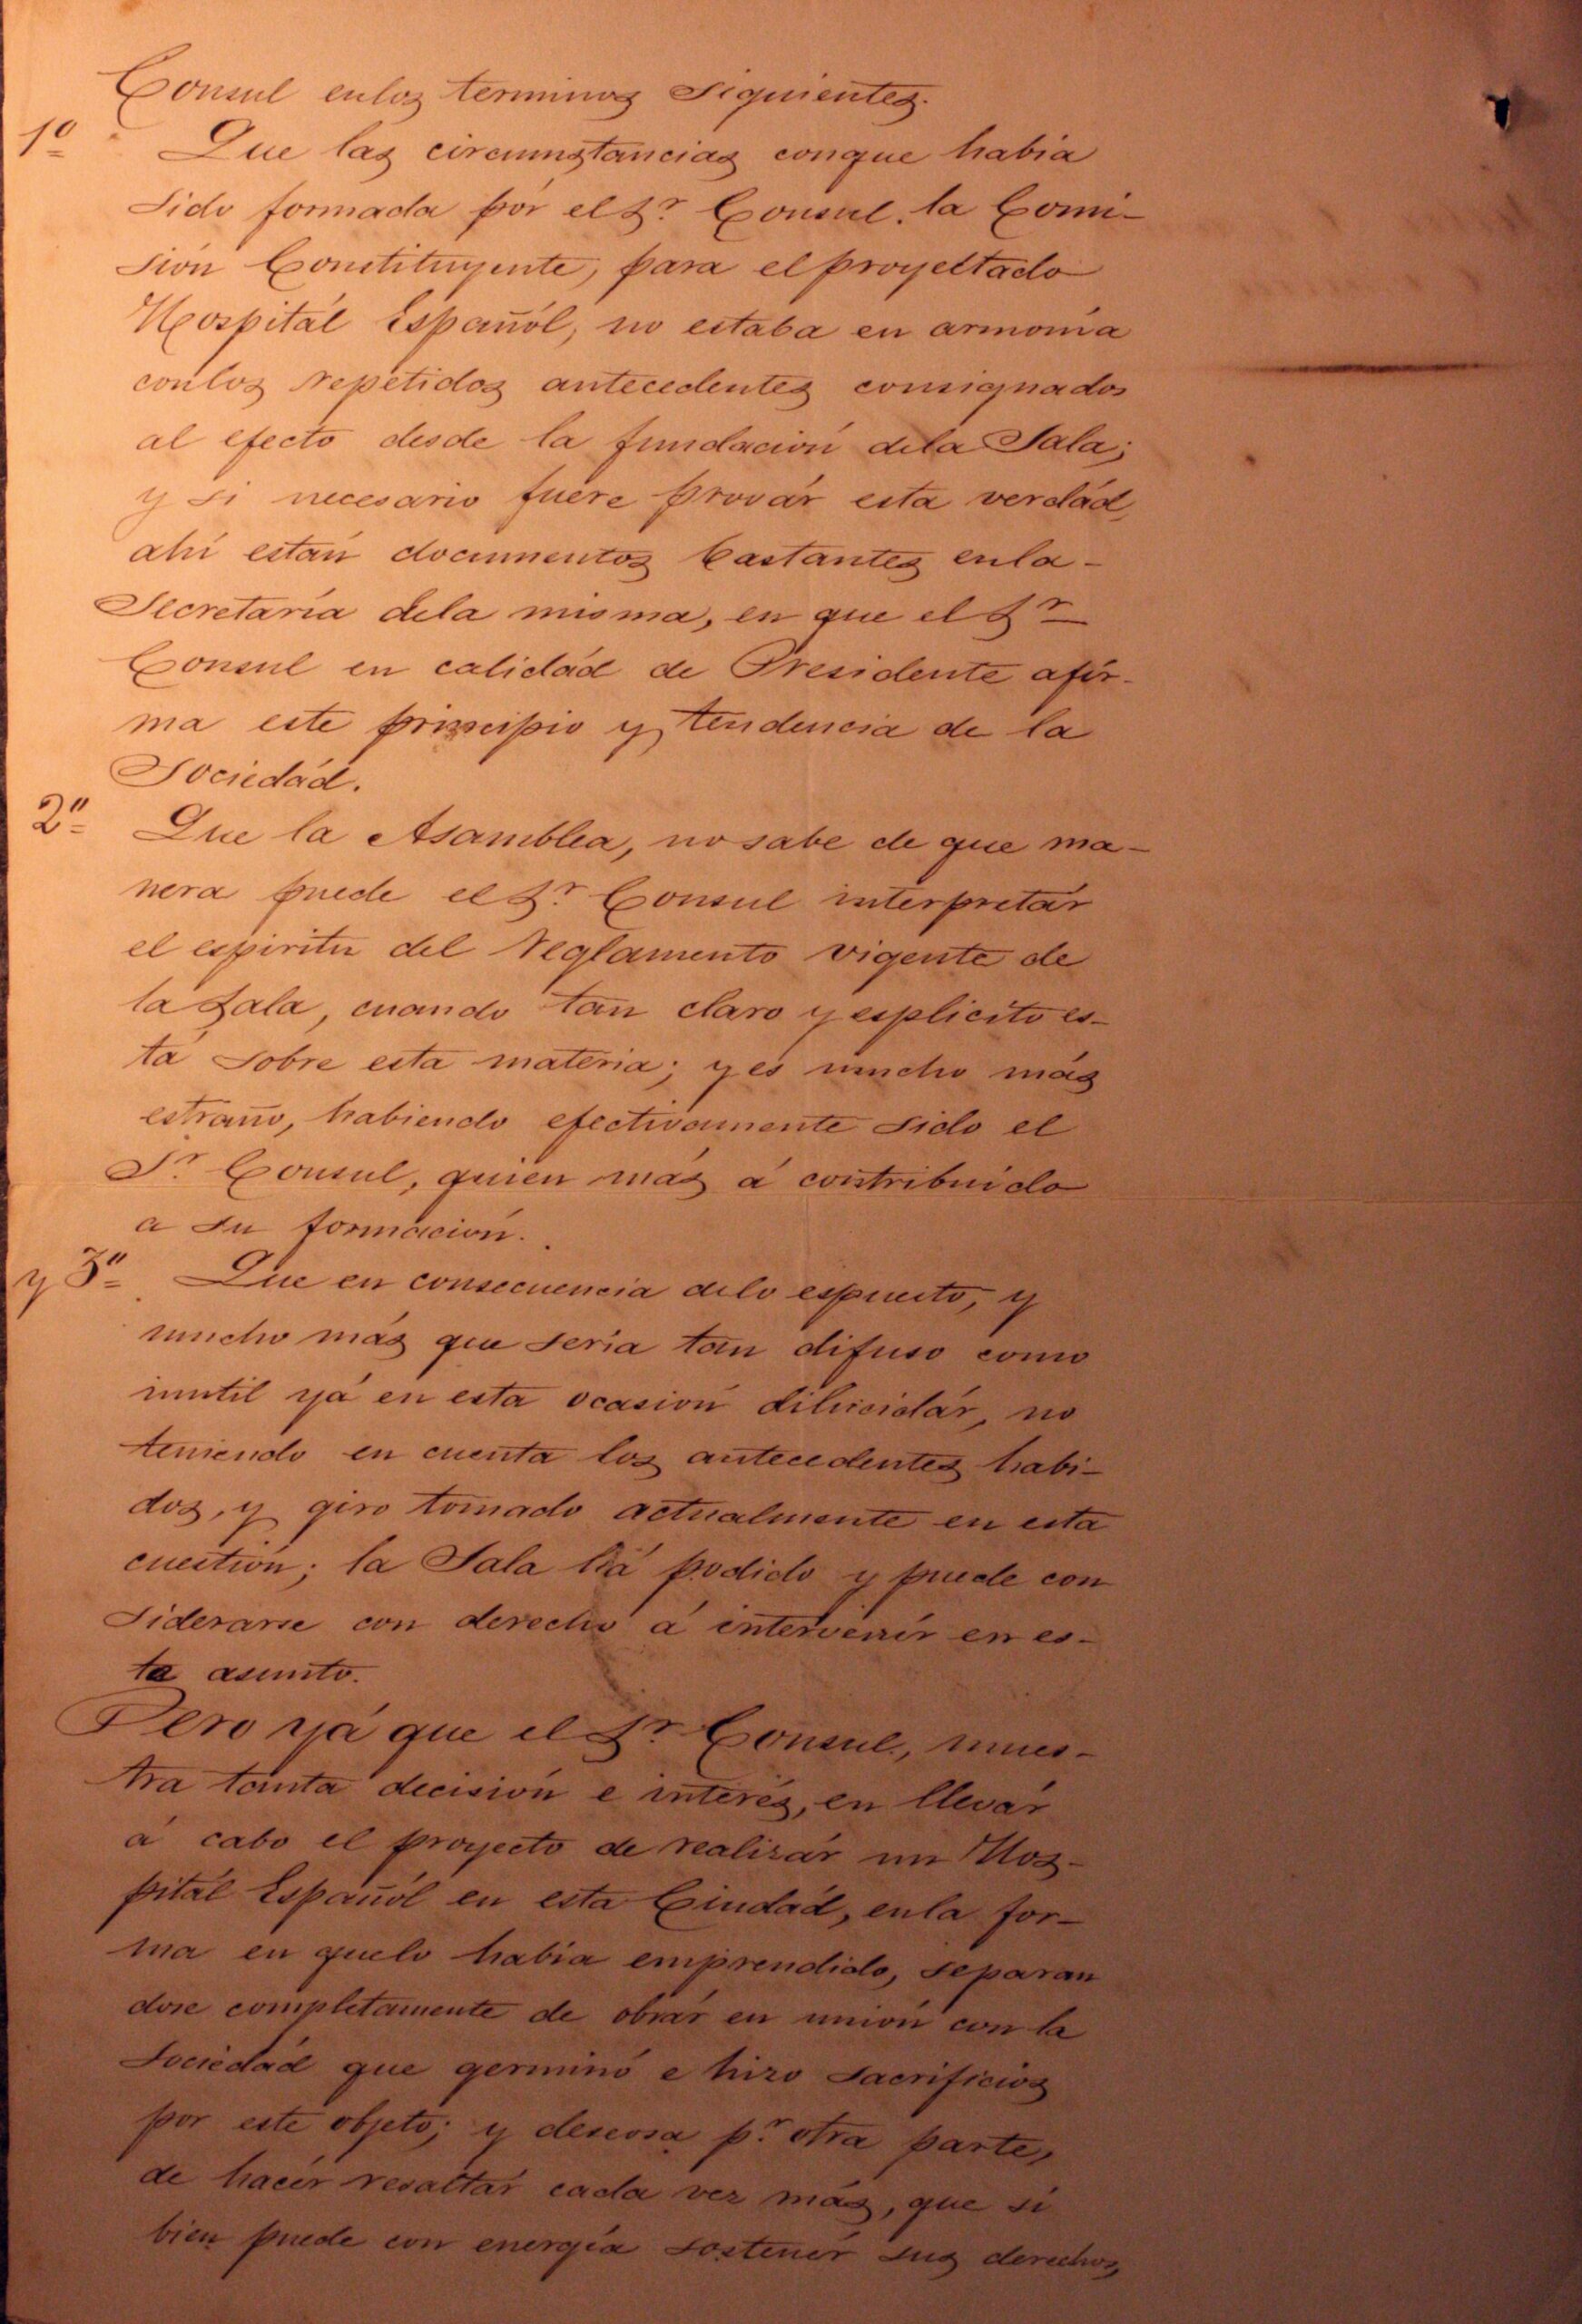 Consul enlos terminos siguientes.
1º Que las circumstancias conque habia
sido formada pór el Sr. Consul, la Comi-
sión Constituyente, para el proyeltado
Hospitál Españól, no estaba en armonía
conlos repetidos antecedentes consignados
al efecto desde la fundación dela Sala;
y si necesario fuere provár esta verdád,
ahí están documentos bastantes enla-
Secretaría dela misma, en que el Sr
Consul en calidád de Presidente afir-
ma este principio y tendencia de la
Sociedád.
2º Que la Asamblea, no sabe de que ma-
nera puede el Sr. Consul interpretár
el espiritu del reglamento vigente de
la Sala, cuando tan claro y esplicito es-
tá sobre esta materia; y es mucho más
estraño, habiendo efectivamente sido el
Sr. Consul, quien más á contribuido
a su formación.
y 3º Que en consecuencia delo espuesto, y
mucho más que seria tan difuso como
inutil yá en esta ocasión dilucidár, no
teniendo en cuenta los antecedentes habi-
dos, y giro tomado actualmente en esta
cuestión; la Sala há podido y puede con
siderarse con derecho á intervenir en es-
te asunto.
Pero yá que el Sr. Consul, mues-
tra tanta decisión e interés, en llevár
á cabo el proyecto de realizár un Hos-
pitál Españól en esta Ciudád, enla for-
ma en quelo habia emprendido, separan
dose completamente de obrár en unión con la
Sociedád que germinó e hizo sacrificios
por este objeto; y deseosa pr. otra parte,
de hacér resaltár cada vez más, que si
bien puede con energía sostenér sus derechos,